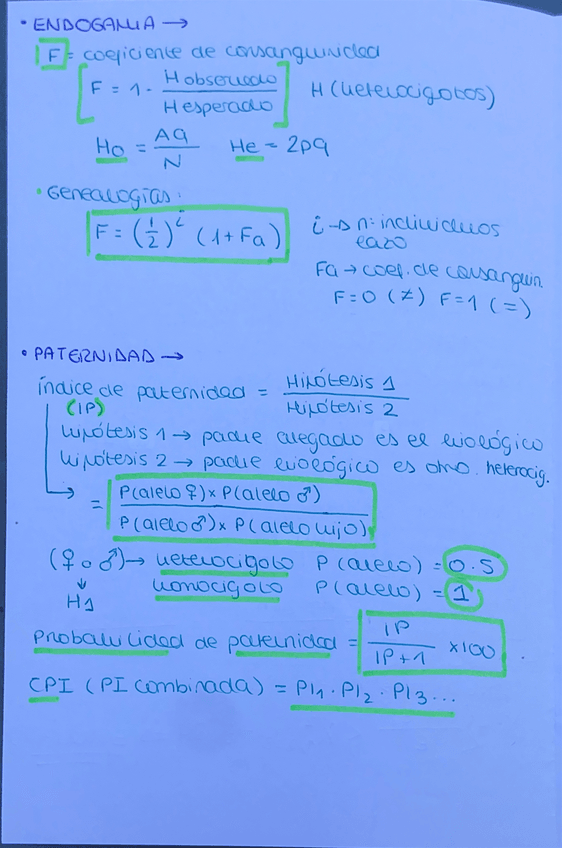 • ENDOGAMIA →
F = coeficiente de consanguinidad
[F = 1 - H observado / H esperado] H (heterocigotos)
Ho = Aa / N He = 2pq
• Genealogías:
F = (1/2)^i (1 + Fa) i → nº individuos
lazo
Fa → coef. de consanguin.
F=0 (≠) F=1 (=)
• PATERNIDAD →
índice de paternidad = Hipótesis 1 / Hipótesis 2
(IP)
hipótesis 1 → padre alegado es el biológico
hipótesis 2 → padre biológico es otro. heterocig.
→ = P(alelo ♀) x P(alelo ♂) / P(alelo ♂) x P(alelo hijo)
(♀ o ♂) → heterocigoto P(alelo) = 0.5
↓ homocigoto P(alelo) = 1
H1
Probabilidad de paternidad = IP / IP+1 x100
CPI (PI combinada) = PI1 · PI2 · PI3 ...